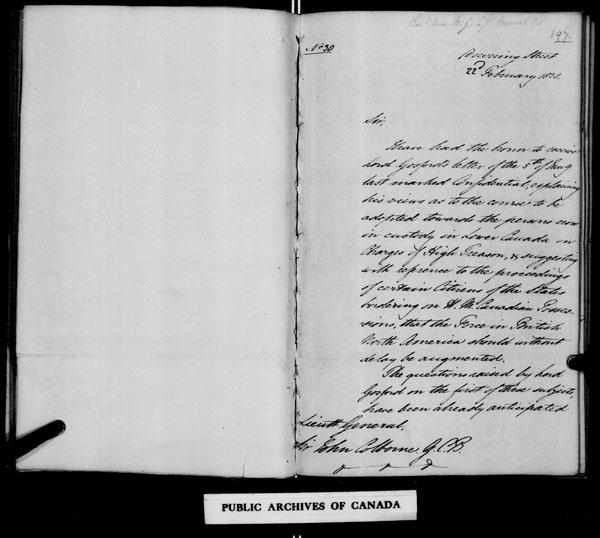 197.
No 30
Downing Street
22d February 1838.
Sir,
I have had the honor to receive
Lord Gosford's letter of the 5th of Jany
last marked Confidential, explaining
his views as to the course to be
adopted towards the persons now
in custody in Lower Canada on
Charges of High Treason, & suggesting
with reference to the proceedings
of certain Citizens of the States
bordering on H. M. Canadian Posses-
sions, that the Force in British
North America should without
delay be augmented.
The questions raised by Lord
Gosford on the first of these subjects,
have been already anticipated
Lieutt General,
Sir John Colborne, G.C.B.
PUBLIC ARCHIVES OF CANADA